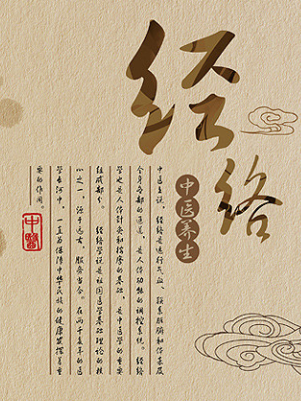 经络
中医养生
中医上说,经络是运行气血、联系脏腑和体表及
全身各部的通道,是人体功能的调控系统。经络
学也是人体针灸和按摩的基础,是中医学的重要
组成部分。 经络学说是祖国医学基础理论的核
心之一,源于远古,服务当今。在两千多年的医
学长河中,一直为保障中华民族的健康发挥着重
要的作用。
中醫